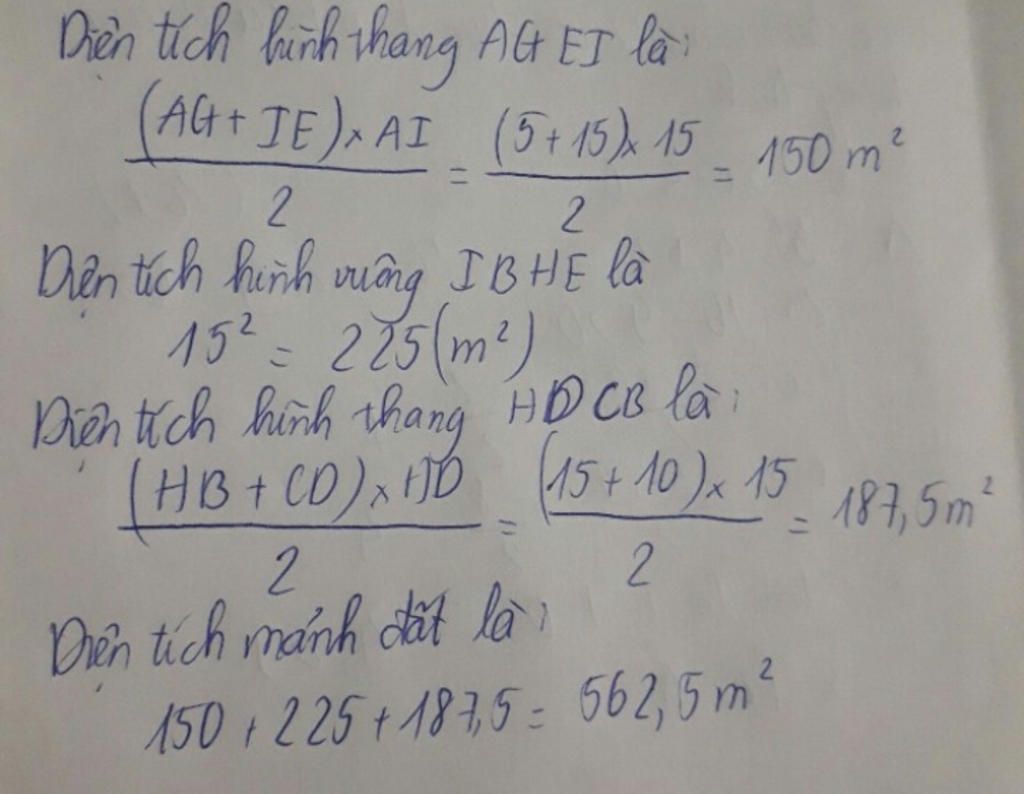 Diện tích hình thang AGEI là:
(AG + IE) x AI / 2 = (5 + 15) x 15 / 2 = 150 m²
Diện tích hình vuông IBHE là
15² = 225 (m²)
Diện tích hình thang HDCB là:
(HB + CD) x HD / 2 = (15 + 10) x 15 / 2 = 187,5 m²
Diện tích mảnh đất là:
150 + 225 + 187,5 = 562,5 m²